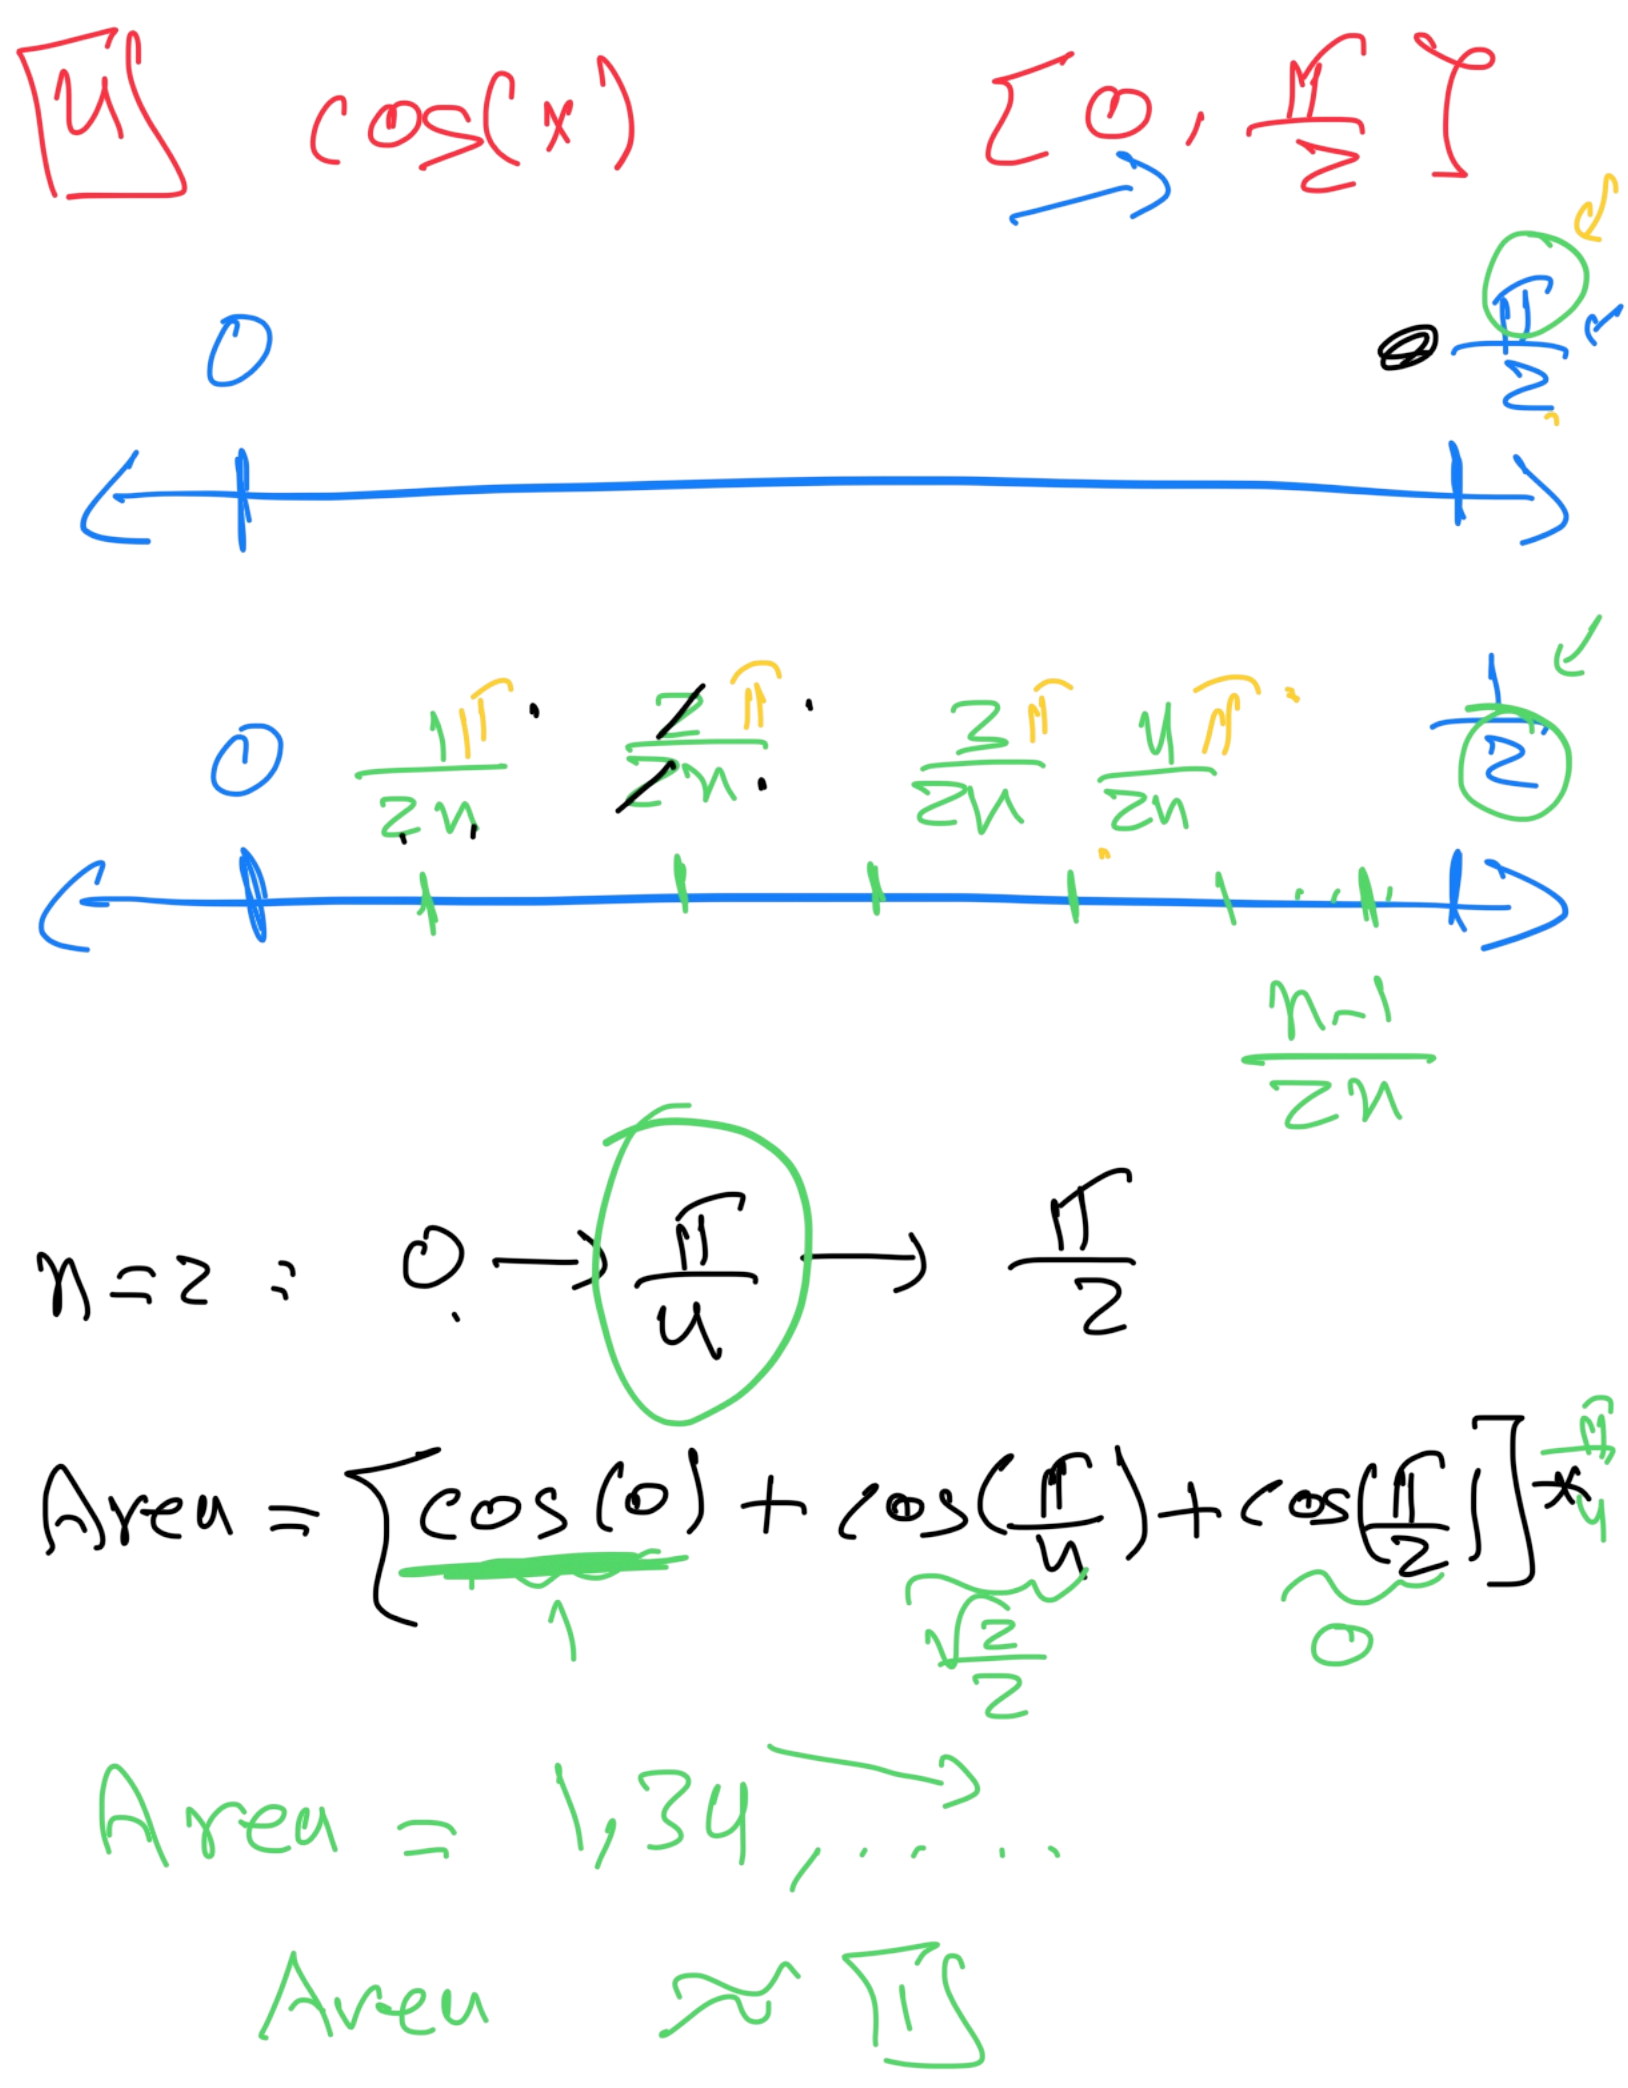 4 cos(x) [0, π/2]
0 π/2
0 1π/2n 2π/2n 3π/2n 4π/2n 1/2
n-1/2n
n=2: 0 → π/4 → π/2
Area = [cos(0) + cos(π/4) + cos(π/2)] * π/4
1 √2/2 0
Area = 1,34,....
Area ≈ 1